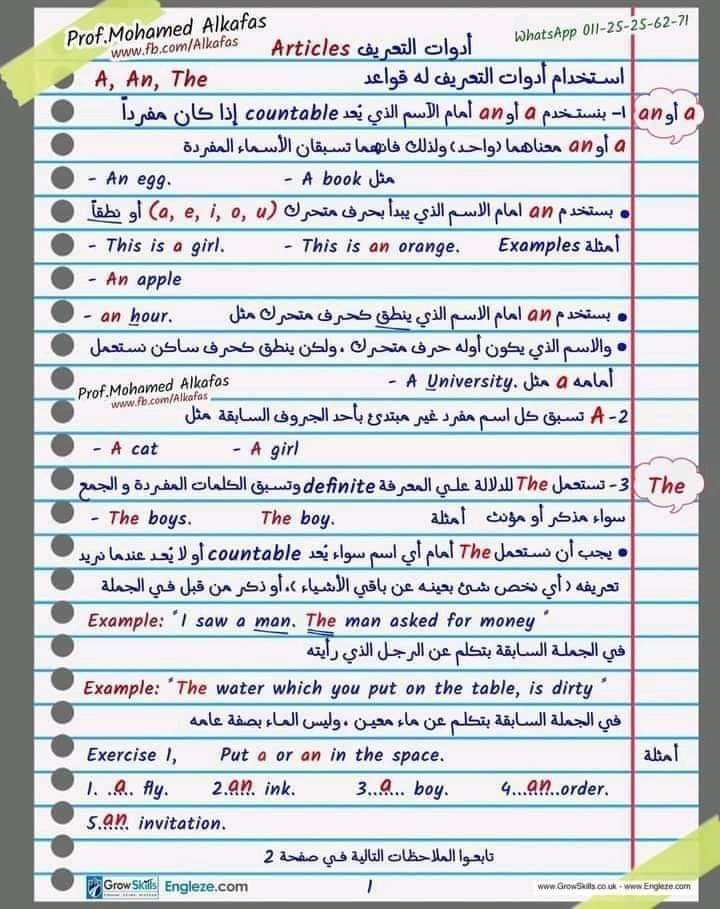 Prof.Mohamed Alkafas
www.fb.com/Alkafas
WhatsApp 011-25-25-62-71
أدوات التعريف Articles
استخدام أدوات التعريف له قواعد A, An, The
a أو an
1- بنستخدم a أو an أمام الآسم الذي يُعد countable إذا كان مفرداً
a أو an معناهما (واحد) ولذلك فانهما تسبقان الأسماء المفردة
- An egg. - A book مثل
• بستخدم an امام الاسم الذي يبدأ بحرف متحرك (a, e, i, o, u) أو نطقاً
- This is a girl. - This is an orange. Examples أمثلة
- An apple
• بستخدم an امام الاسم الذي ينطق كحرف متحرك مثل - an hour.
• والاسم الذي يكون أوله حرف متحرك ، ولكن ينطق كحرف ساكن نستعمل
أمامه a مثل - A University.
Prof.Mohamed Alkafas
www.fb.com/Alkafas
2- A تسبق كل اسم مفرد غير مبتدئ بأحد الحروف السابقة مثل
- A cat - A girl
The
3- تستعمل The للدلالة علي المعرفة definite وتسبق الكلمات المفردة و الجمع
سواء مذكر أو مؤنث أمثلة The boy. - The boys.
• يجب أن نستعمل The أمام أي اسم سواء يُعد countable أو لا يُعد عندما نريد
تعريفه ( أي نخص شئ بعينه عن باقي الأشياء )، أو ذكر من قبل في الجملة
Example: "I saw a man. The man asked for money"
في الجملة السابقة بتكلم عن الرجل الذي رأيته
Example: "The water which you put on the table, is dirty"
في الجملة السابقة بتكلم عن ماء معين ، وليس الماء بصفة عامه
Exercise 1, Put a or an in the space. أمثلة
1. ..a.. fly. 2.an... ink. 3...a... boy. 4...an...order.
5.an... invitation.
تابعوا الملاحظات التالية في صفحة 2
GrowSkills Engleze.com
1
www.GrowSkills.co.uk - www.Engleze.com